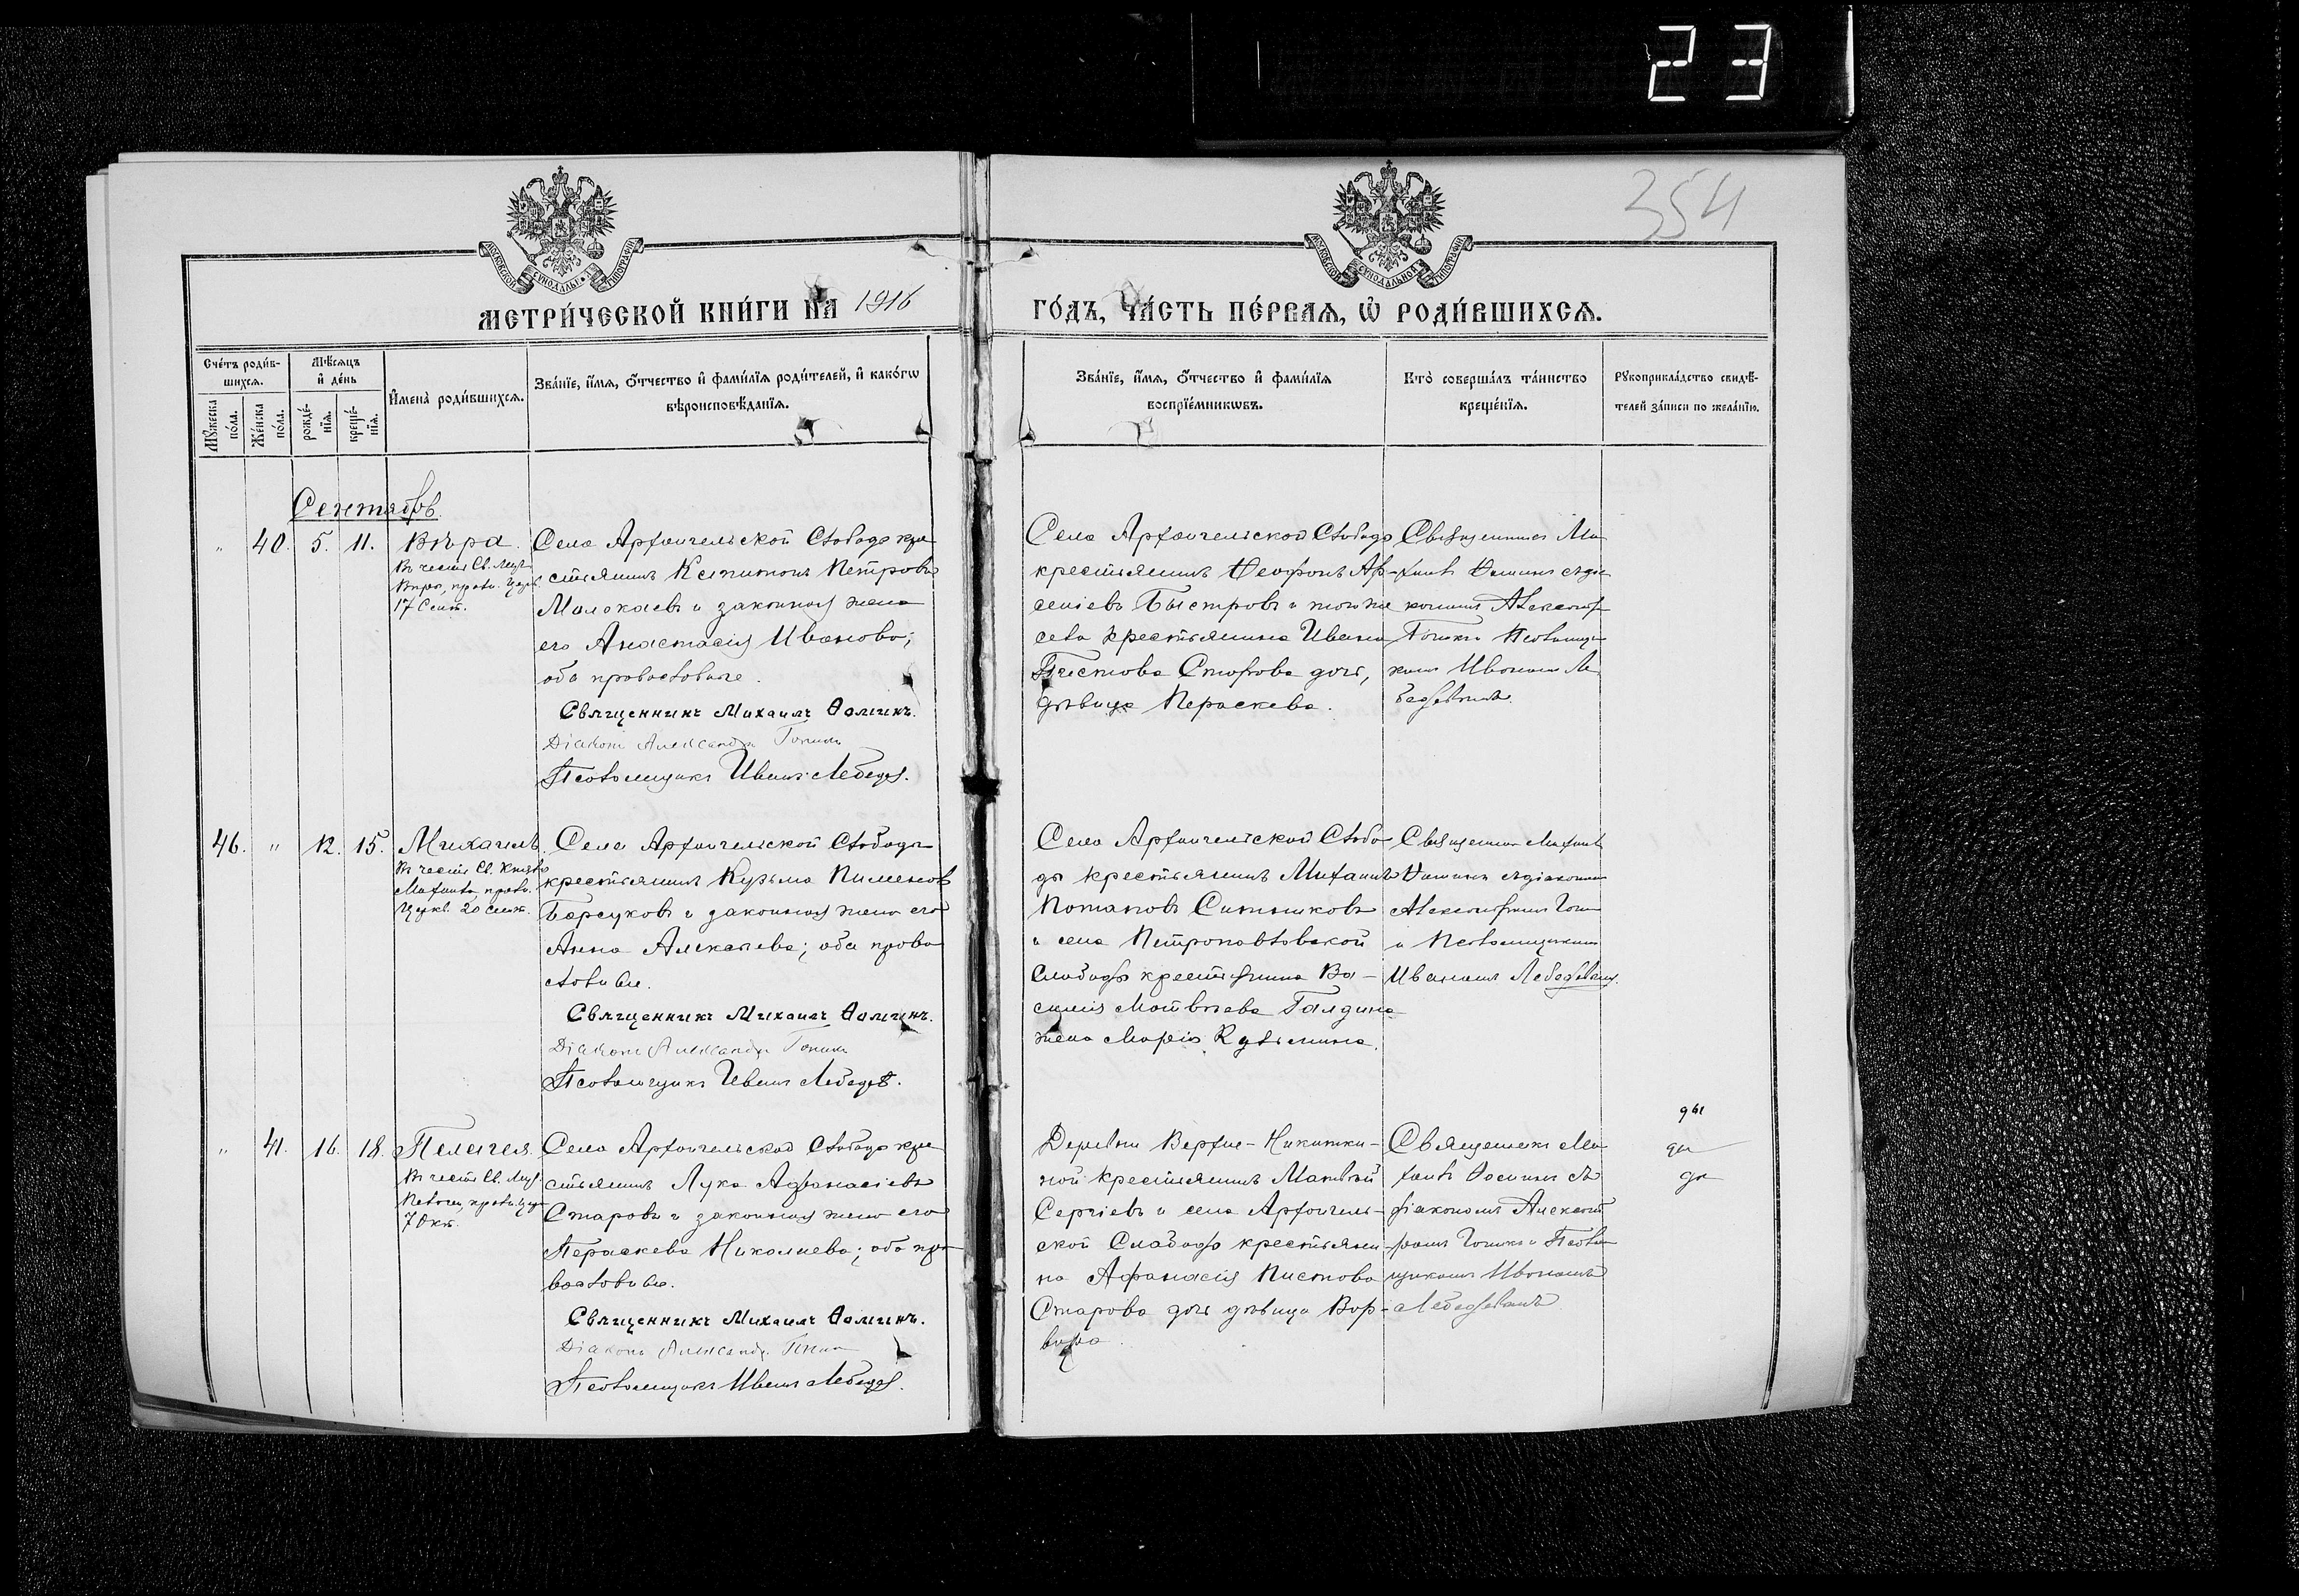 23
354
МОСКОВСКОЙ СУНОДАЛЬН. ТИПОГРАФІИ
МОСКОВСКОЙ СУНОДАЛЬНОЙ ТИПОГРАФІИ
МЕТРИ́ЧЕСКОЙ КНИ́ГИ НА 1916
ГО́ДЪ, ЧА́СТЬ ПЕ́РВАѦ, Ѡ҆ РОДИ́ВШИХСѦ.
Сче́тъ роди́в-
шихсѧ.
Мꙋ́жеска по́ла.
Же́нска по́ла.
Мѣ́сѧцъ
и҆ де́нь
рожде́-
нїѧ.
креще́-
нїѧ.
И҆мена̀ роди́вшихсѧ.
Зва́нїе, и҆́мѧ, ѻ҆́тчество и҆ фами́лїѧ роди́телей, и҆ како́гѡ
вѣроисповѣ́данїѧ.
Зва́нїе, и҆́мѧ, ѻ҆́тчество и҆ фами́лїѧ
воспрїе́мникѡвъ.
Кто̀ соверша́лъ та́инство
креще́нїѧ.
Рꙋкоприкла́дство свидѣ́-
телей за́писи по жела́нїю.
Сентябрь.
" 40. 5. 11. Вѣра.
Въ честь Св. Муч.
Вѣры, празн. Церк.
17 Сент.
Села Архангельской Слободы кре
стьянинъ Капитонъ Петровъ
Малакаевъ и законная жена
его Анастасія Иванова;
оба православные.
Священникъ Михаилъ Ѳоминъ.
Діаконъ Александръ Тонинъ
Псаломщикъ Иванъ Лебедевъ.
Села Архангельской Слободы
крестьянинъ Ѳеофанъ Ар-
сеніевъ Быстровъ и того же
села крестьянина Ивана
Пистова Старова дочь,
дѣвица Параскева.
Священникъ Ми
хаилъ Ѳоминъ съ діа
кономъ Александр
Тонинъ и Псаломщи
комъ Иваномъ Ле
бедевымъ.
46. " 12. 15. Михаилъ.
Въ честь Св. Князя
Михаила, празн.
Церк. 20 Сент.
Села Архангельской Слободы
крестьянинъ Кузьма Пименовъ
Барсуковъ и законная жена его
Анна Алексіева; оба право
славные.
Священникъ Михаилъ Ѳоминъ.
Діаконъ Александръ Тонинъ
Псаломщикъ Иванъ Лебедевъ.
Села Архангельской Слобо
ды крестьянинъ Михаилъ
Потаповъ Ситниковъ
и села Петропавловской
Слободы крестьянина Ва-
силія Матвѣева Галдина
жена Марія Кузьмина.
Священникъ Михаилъ
Ѳоминъ съ діакономъ
Александромъ Тони
и Псаломщикомъ
Иваномъ Лебедевымъ.
" 41. 16. 18. Пелагея.
Въ честь Св. Муч.
Пелагеи, празн. Цер
7 Окт.
Села Архангельской Слободы кре
стьянинъ Лука Аѳанасіевъ
Старовъ и законная жена его
Параскева Николаева; оба пра
вославные.
Священникъ Михаилъ Ѳоминъ.
Діаконъ Александръ Тонинъ
Псаломщикъ Иванъ Лебедевъ.
Деревни Верхне-Никитки-
ной крестьянинъ Матвѣй
Сергіевъ и села Архангель-
ской Слободы крестьяни-
на Афанасія Пистова
Старова дочь дѣвица Вар-
вара.
Священникъ Ми
хаилъ Ѳоминъ съ
діакономъ Алексан
дромъ Тонинъ и Псалом
щикомъ Иваномъ
Лебедевымъ